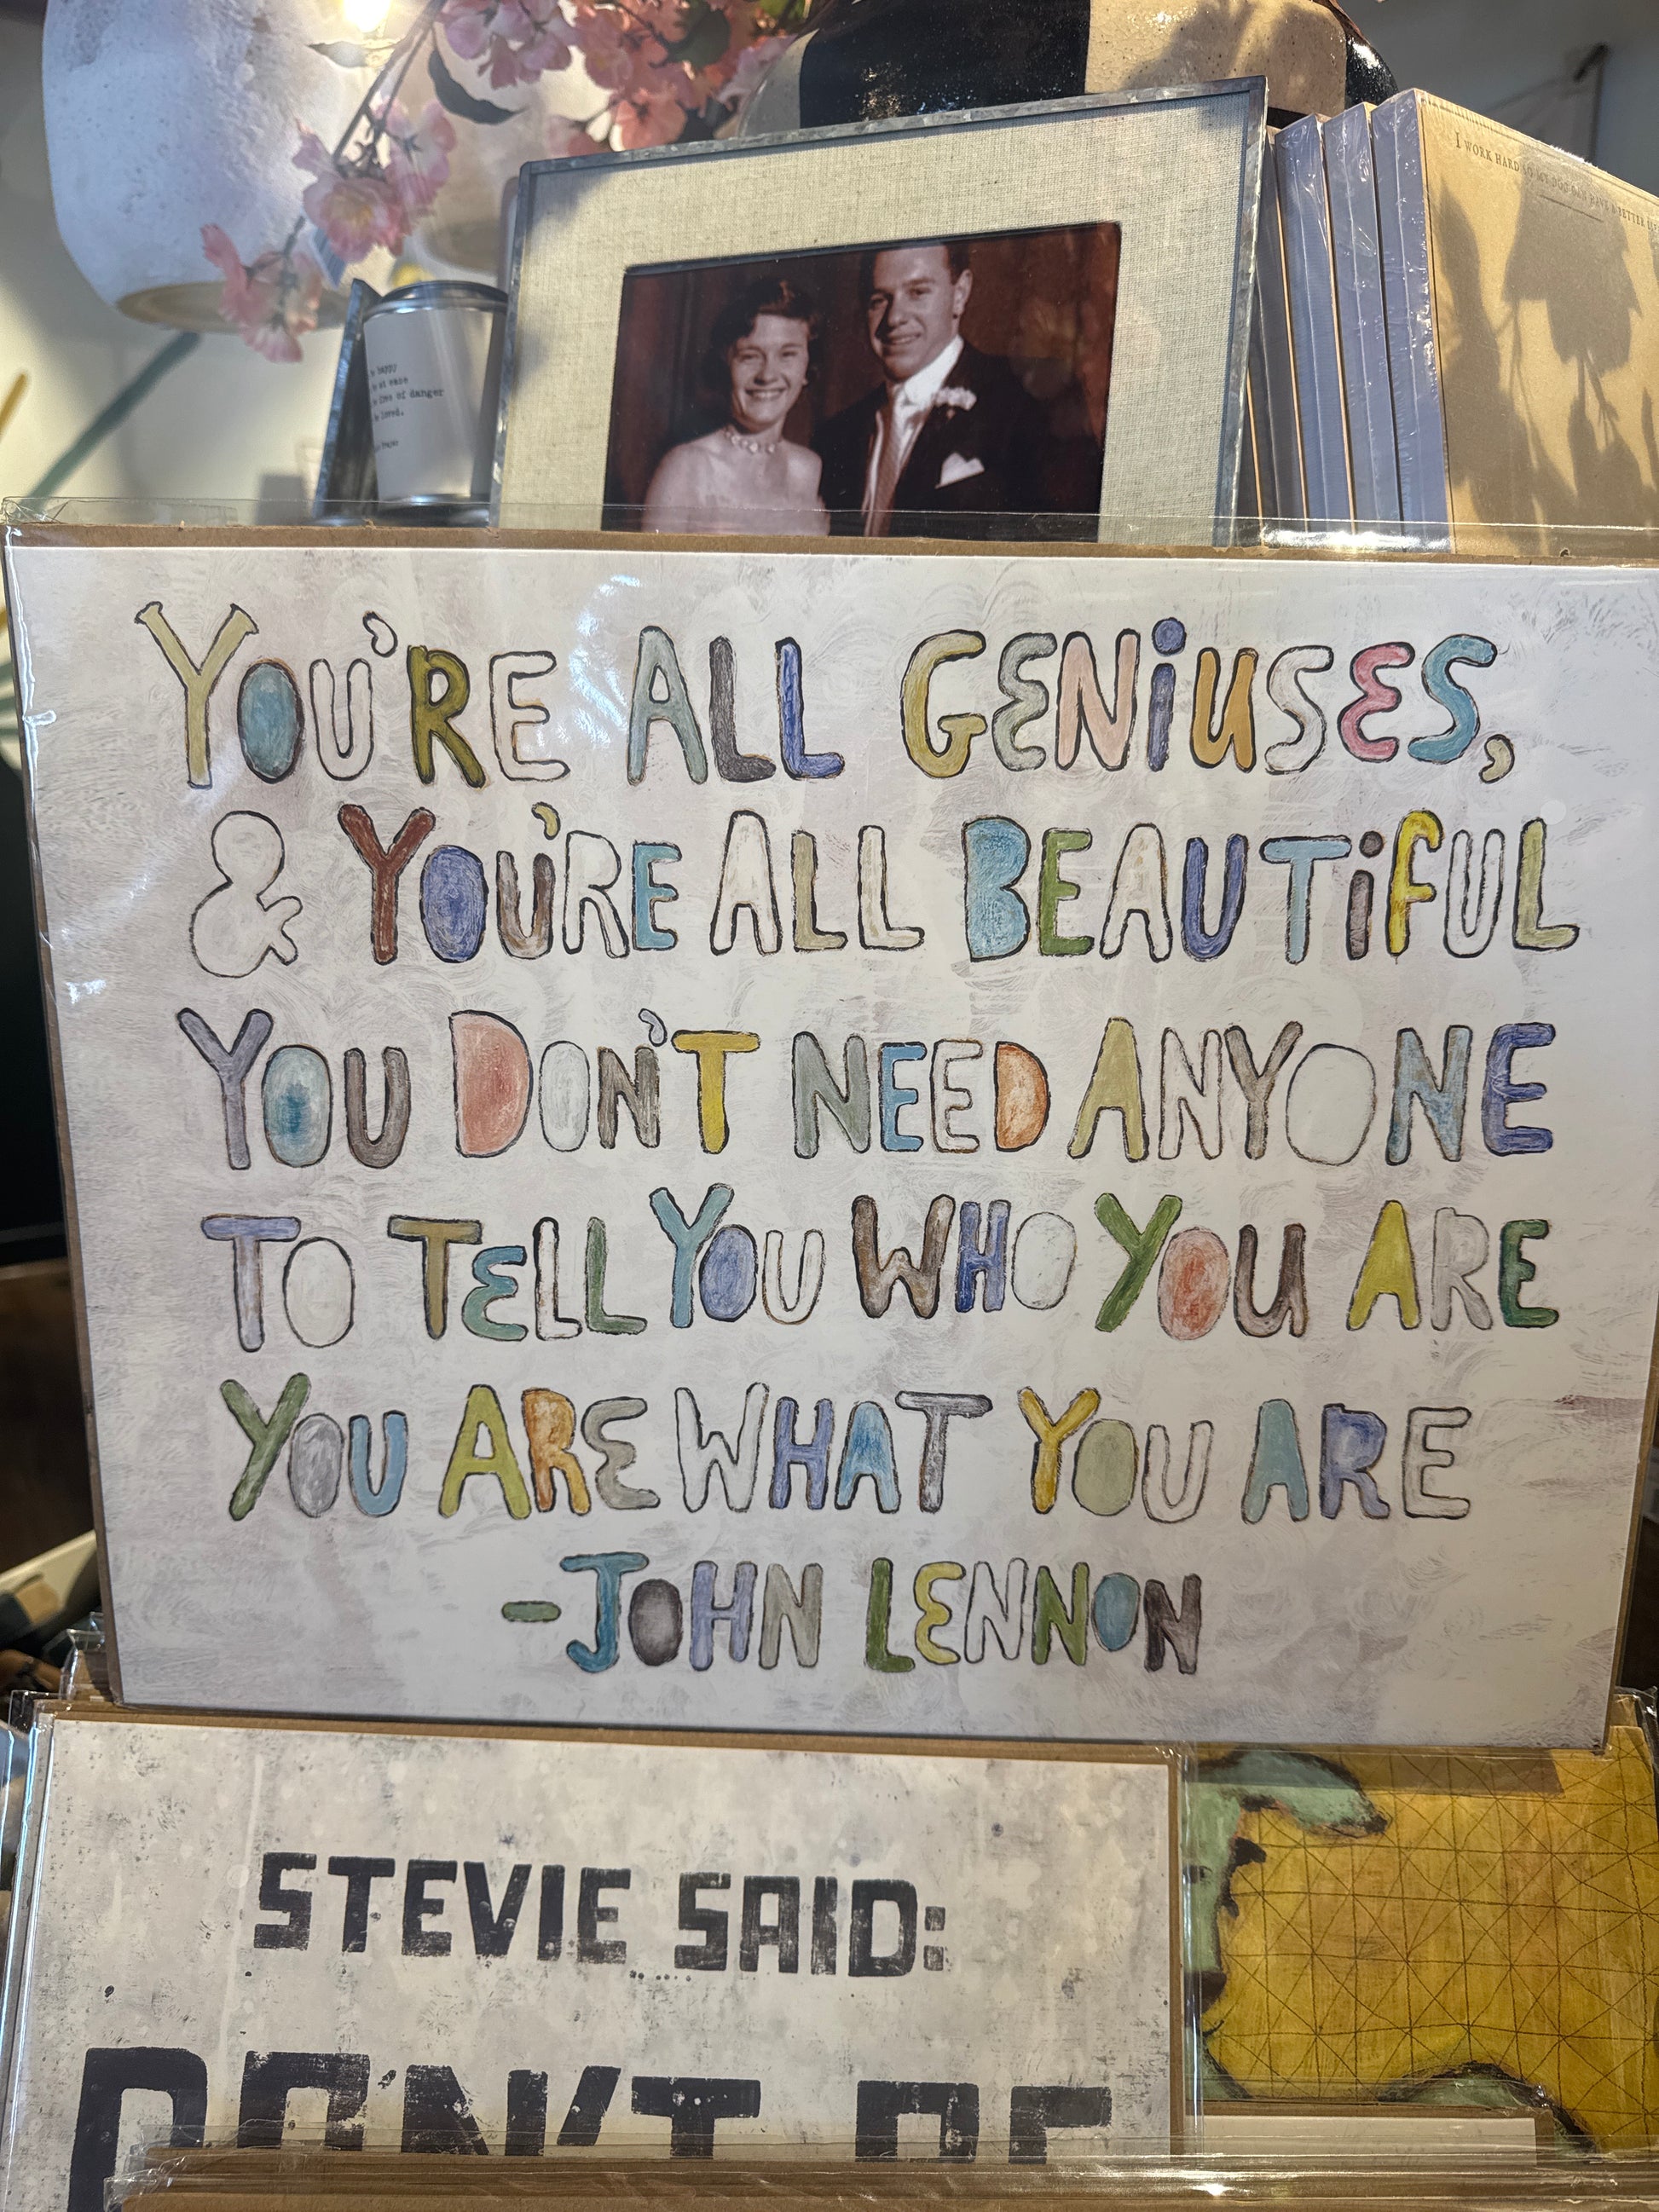 I WORK HARD SO MY DOG CAN HAVE A BETTER
happy
at ease
free of danger
loved.
YOU'RE ALL GENiUSES,
& YOU'RE ALL BEAUTiFUL
YOU DON'T NEED ANYONE
TO TELL YOU WHO YOU ARE
YOU ARE WHAT YOU ARE
-JOHN LENNON
STEVIE SAID:
DON'T BE